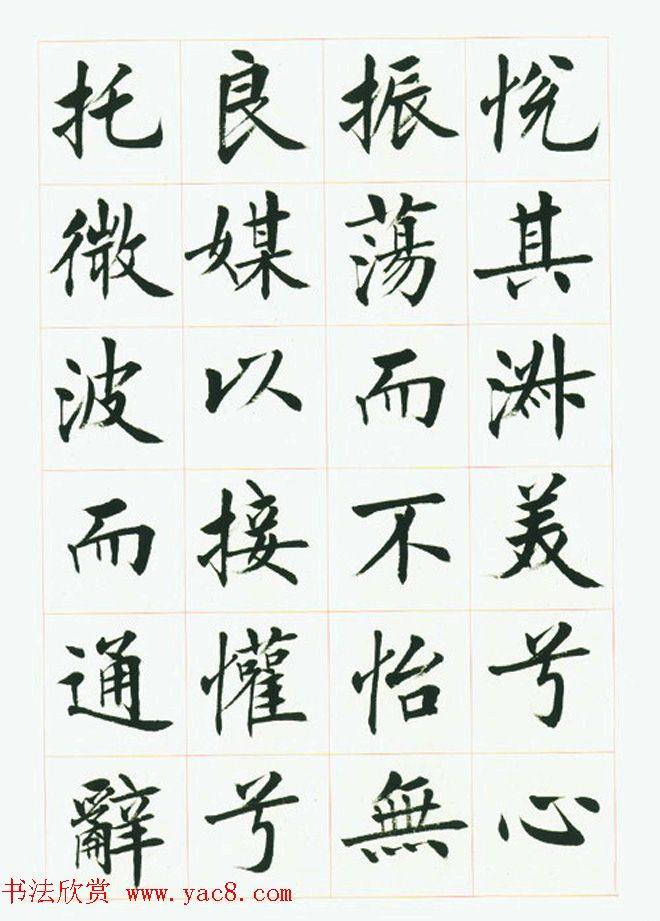 悅其淑美兮心
振蕩而不怡無
良媒以接懽兮
托微波而通辭
书法欣赏 www.yac8.com